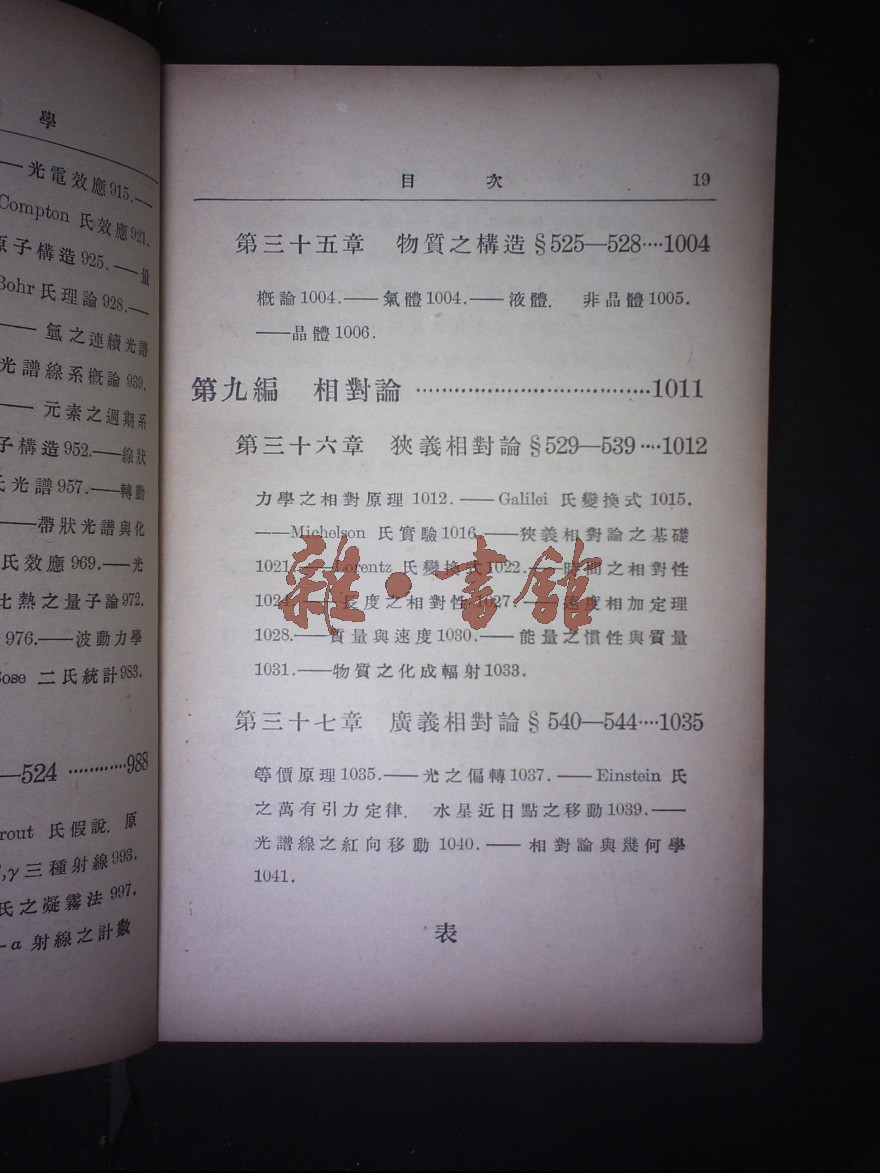 學
——光電效應915.——
Compton 氏效應921.
原子構造925.——量
Bohr 氏理論928.——
——氫之連續光譜
光譜線系概論939.
——元素之週期系
子構造952.——線狀
氏光譜957.——轉動
——帶狀光譜與化
氏效應969.——光
比熱之量子論972.
976.——波動力學
Bose 二氏統計983.
—524 …………988
rout 氏假說．原
γ三種射線993.
氏之凝霧法997.
α射線之計數
目 次 19
第三十五章 物質之構造 §525—528‥‥1004
概論1004.——氣體1004.——液體． 非晶體1005.
——晶體1006.
第九編 相對論 …………………………………1011
第三十六章 狹義相對論 §529—539‥‥1012
力學之相對原理 1012.——Galilei 氏變換式 1015.
——Michelson 氏實驗1016.——狹義相對論之基礎
1021.——Lorentz 氏變換式1022.——時間之相對性
1024.——長度之相對性1027.——速度相加定理
1028.——質量與速度1030.——能量之慣性與質量
1031.——物質之化成輻射1033.
雜·書館
第三十七章 廣義相對論 §540—544‥‥1035
等價原理1035.——光之偏轉1037.——Einstein 氏
之萬有引力定律． 水星近日點之移動1039.——
光譜線之紅向移動 1040.——相對論與幾何學
1041.
表